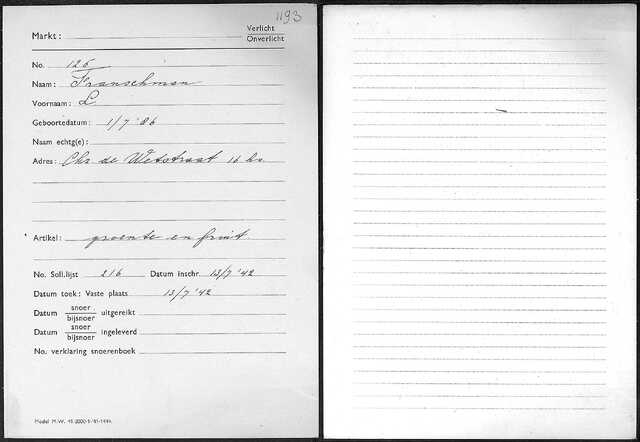 1193
Markt: Verlicht
Onverlicht
No. 126
Naam: Franschman
Voornaam: L
Geboortedatum: 1/7 '86
Naam echtg(e):
Adres: Chr de Wetstraat 16 hs.
Artikel: groente en fruit.
No. Soll.lijst 216 Datum inschr. 13/7 '42
Datum toek: Vaste plaats 13/7 '42
Datum snoer uitgereikt
bijsnoer
Datum snoer ingeleverd
bijsnoer
No. verklaring snoerenboek
Model M.W.